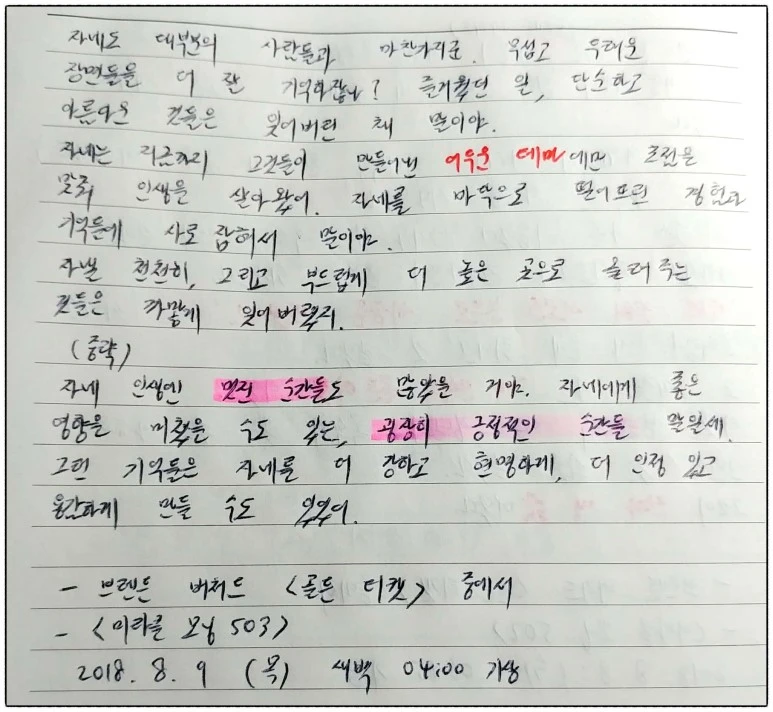 자네도 대부분의 사람들과 마찬가지로 무섭고 두려운
장면들을 더 잘 기억하잖나? 즐거웠던 일, 단순하고
아름다운 것들은 잊어버린 채 말이야.
자네는 지금까지 그것들이 만들어낸 어두운 테마에만 초점을
맞춰 인생을 살아왔어. 자네를 바닥으로 떨어뜨린 경험과
기억들에 사로잡혀서 말이야.
자넬 천천히, 그리고 부드럽게 더 높은 곳으로 올려주는
것들은 까맣게 잊어버렸지.
(중략)
자네 인생엔 멋진 순간들도 많았을 거야. 자네에게 좋은
영향을 미쳤을 수도 있는, 굉장히 긍정적인 순간들 말일세.
그런 기억들은 자네를 더 강하고 현명하게, 더 인정 있고
용감하게 만들 수도 있었어.
- 브렌든 버처드 <골든 티켓> 중에서
- <미라클 모닝 503>
2018. 8. 9 (목) 새벽 04:00 기상